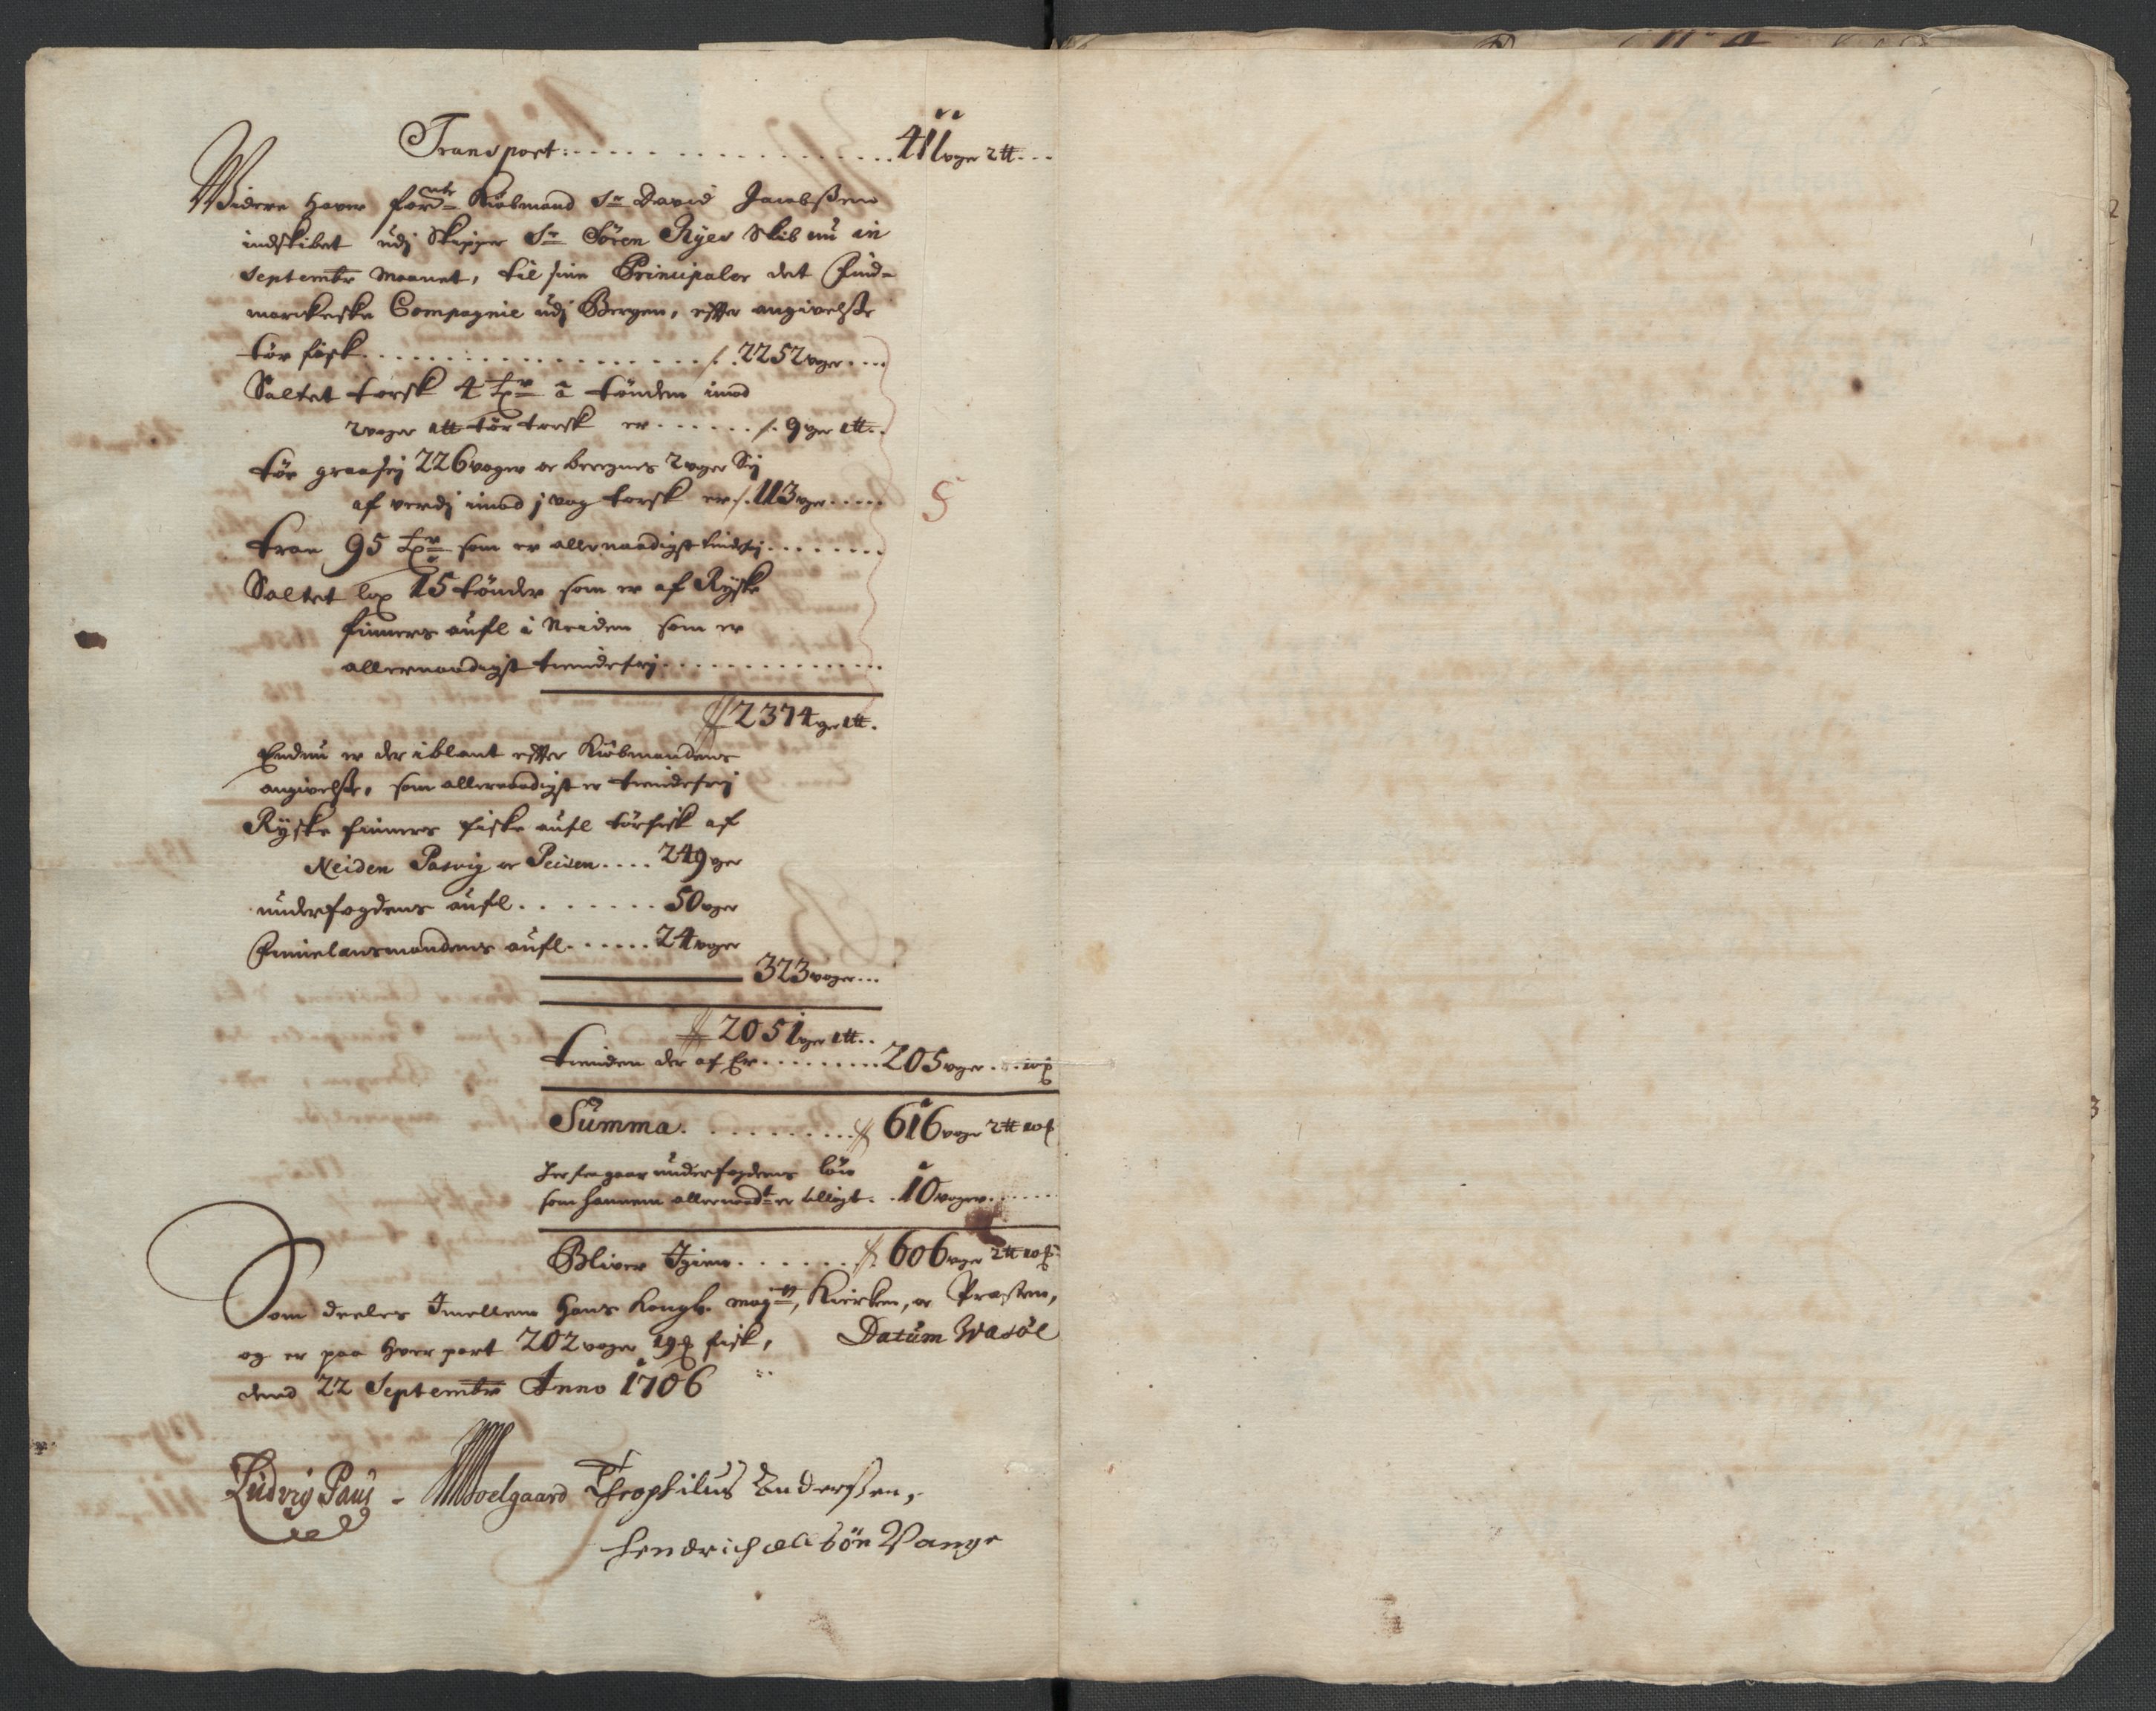 Transport: . . . . . 411 woger 2 tt . . .
Widere hawer forn.te Kiøbmand Sr. David Jacobßen
indskibet udj Skipper Sr. Sören Ryes Skib nu in
Septembr Maanet, til sine Principaler det Find-
marckeske Compagnie udj Bergen, effter angivelße
tør fisk . . . . . 2252 woger . . . .
Saltet torsk 4 Tr. à tönden imod
2 woger 1 tt tör torsk er . . . . . 9 wger 1 tt . .
tör graasej 226 woger or beregnes 2 wger Sej
af verdj imod j wog torsk er 113 wger . . . . .
Tran 95 Tr. som er allernaadigst tiendefrj . . . . . .
Saltet lax 15 tönder som er af Ryske
finners aufl i Neiden som er
allernaadigst tiendefrj . . . . . .
2374 wger 1 tt .
Endnu er der iblant effter Kiöbmandens
angivelße, som allernaadigst er tiendefrj
Ryske finners fiske aufl törfisk af
Neiden Pasvig or Peisen . . . . 249 wger
underfogdens aufl . . . . . . . 50 wger
Finnelansmandens aufl . . . . . . 24 woger
323 woger . . .
2051 wger 1 tt . .
tienden der af Er . . . . . . 205 woger . . .
Summa . . . . . . 616 woger 2 tt
Her fragaar underfogdens lön
som hannem allernaadt. er tillagt . . 10 woger . . . .
Bliver Igien . . . . . . 606 woger 2 tt
Som deeles Imellem Hans Kongl. Mayts., Kirken, or Præsten,
og er paa hver part 202 woger fisk, Datum Wasöe
dend 22 Septembr Anno 1706
Ludvig Paus - Soelgaard Theophilus Anderßen,
Hendrich Vange